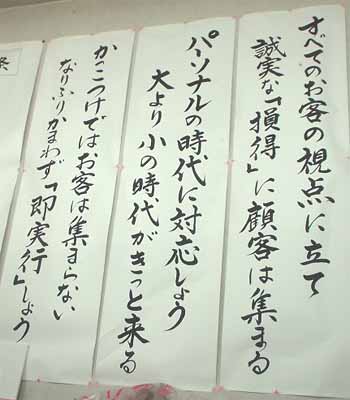 すべてのお客の視点に立て
誠実な「損得」に顧客は集まる
パーソナルの時代に対応しよう
大より小の時代がきっと来る
かっこつけではお客は集まらない
なりふりかまわず「即実行」しよう